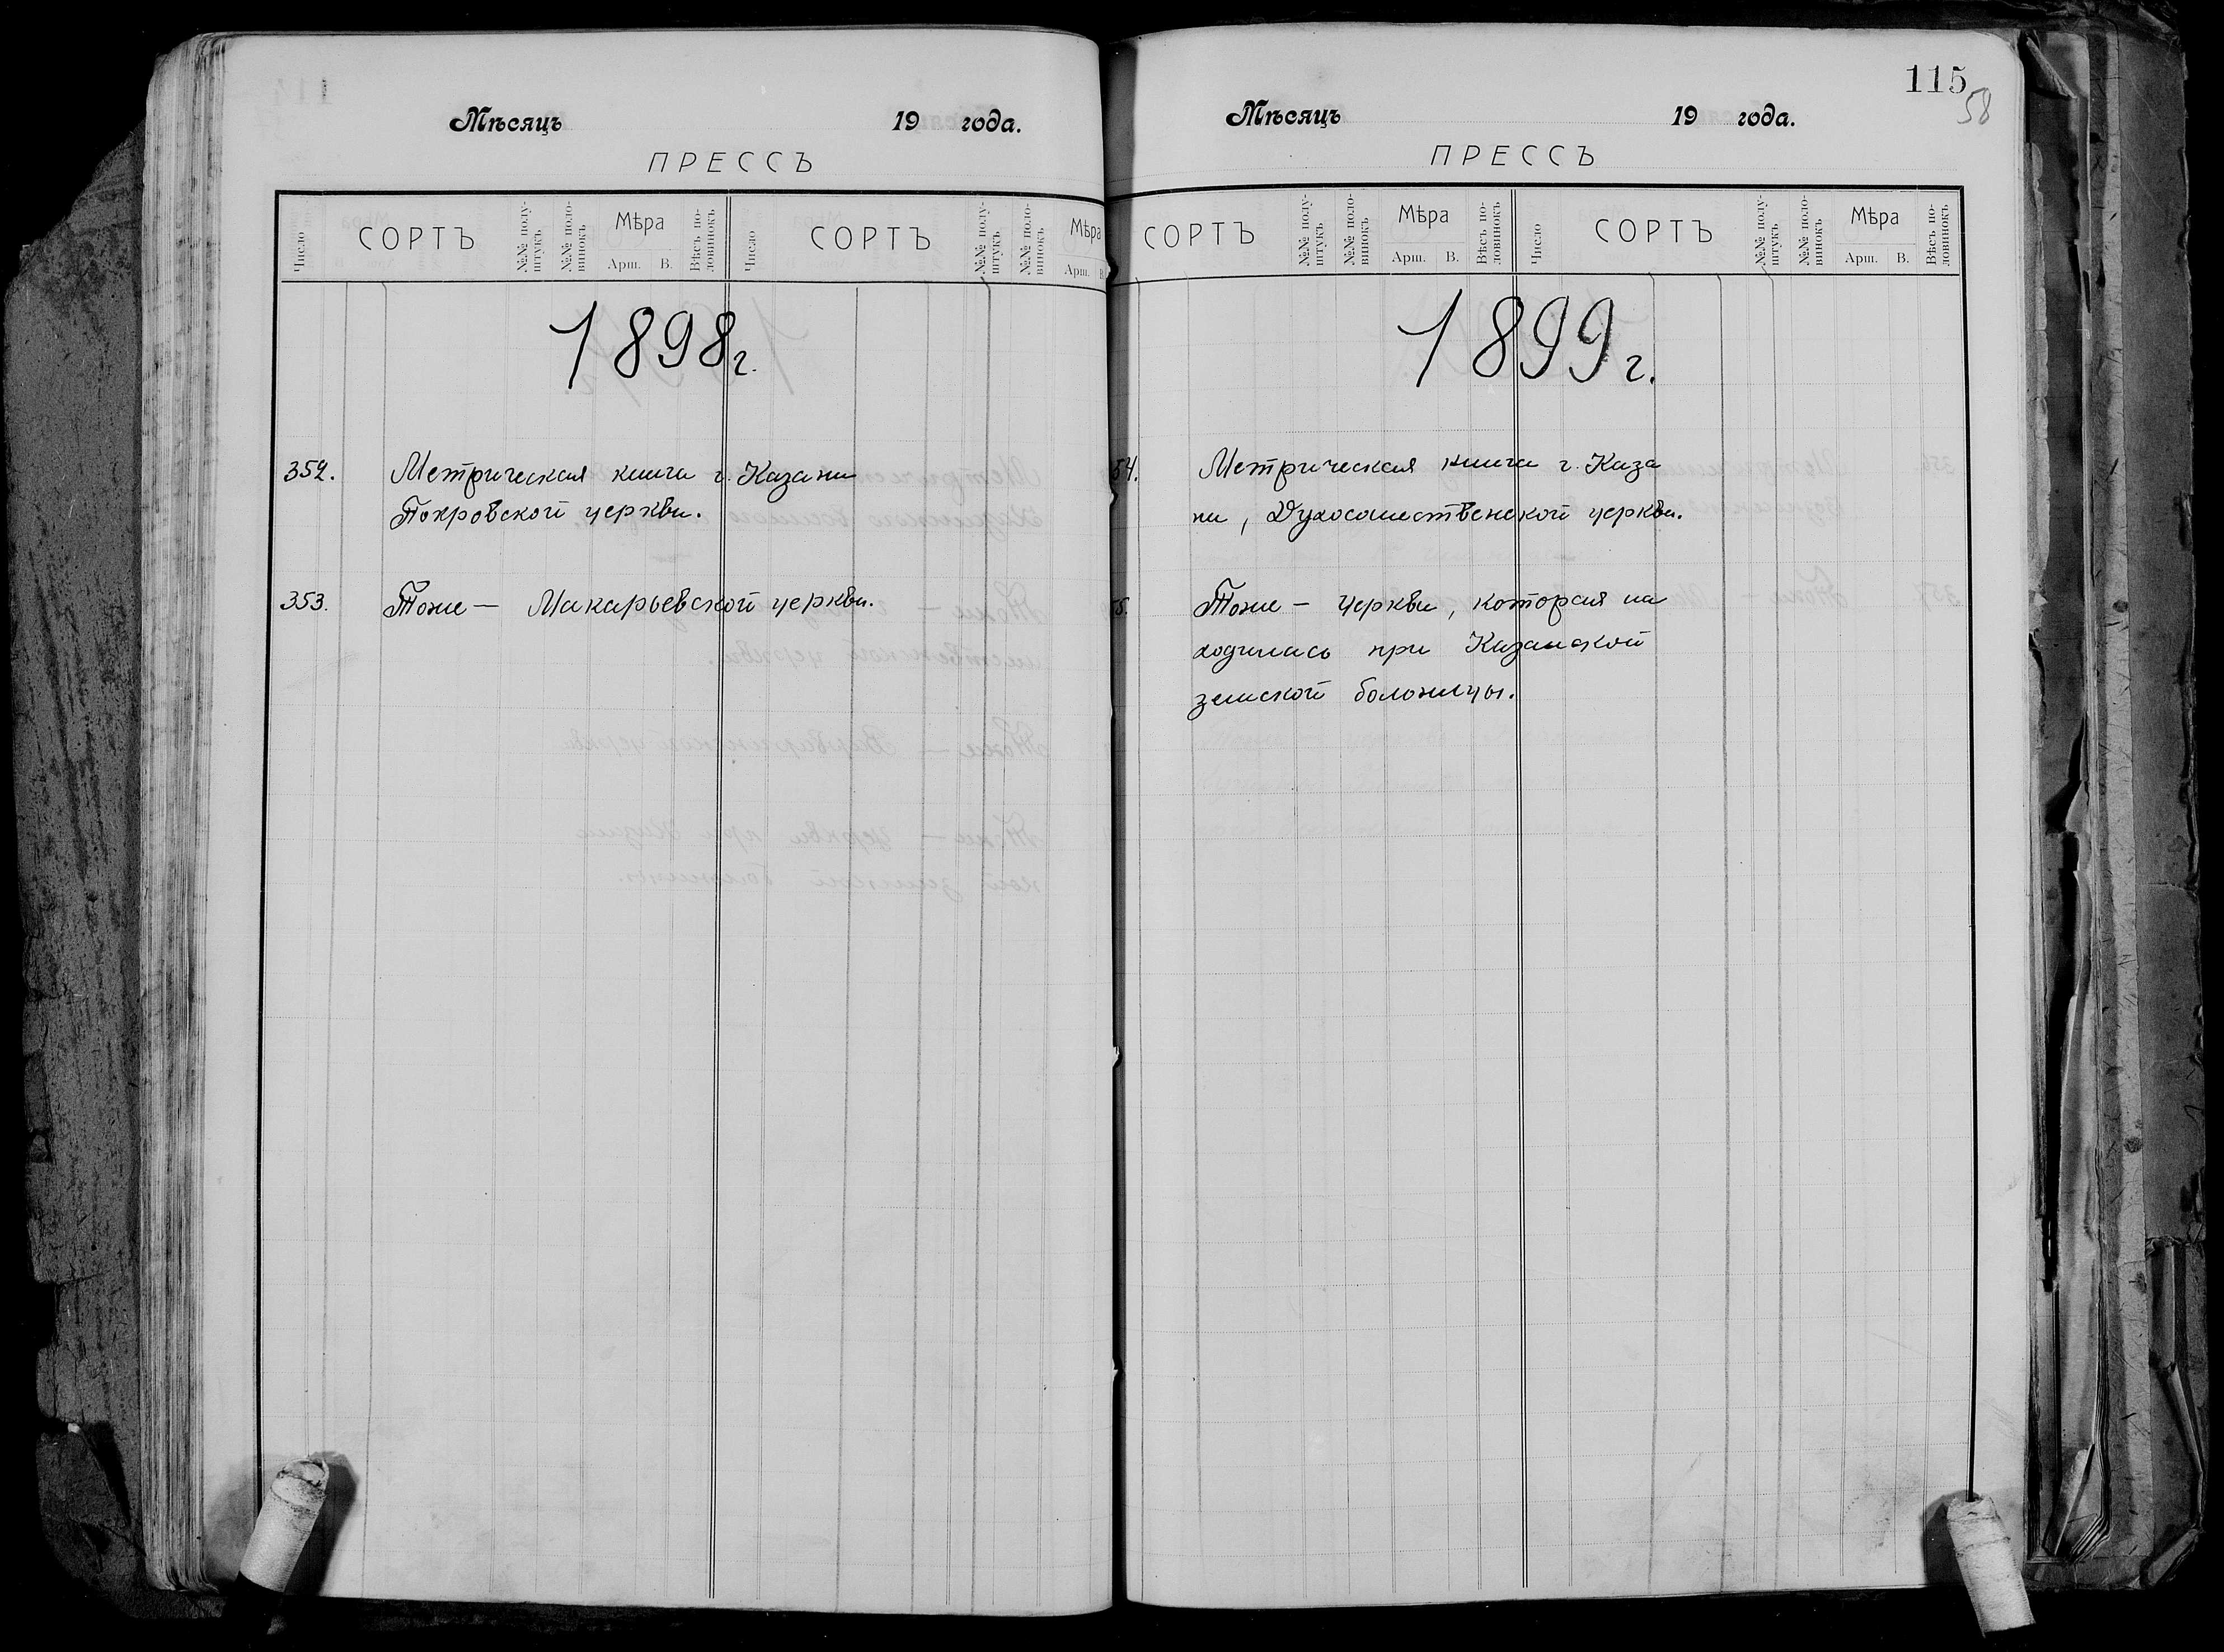 Мѣсяцъ 19 года.
ПРЕССЪ
Число СОРТЪ №№ полу-штукъ №№ поло-винокъ Мѣра Арш. В. Вѣсъ по-ловинокъ Число СОРТЪ №№ полу-штукъ №№ поло-винокъ Мѣра Арш. В.
1898 г.
352. Метрическая книга г. Казани
Покровской церкви.
353. Тоже — Макарьевской церкви.
115
58
Мѣсяцъ 19 года.
ПРЕССЪ
СОРТЪ №№ полу-штукъ №№ поло-винокъ Мѣра Арш. В. Вѣсъ по-ловинокъ Число СОРТЪ №№ полу-штукъ №№ поло-винокъ Мѣра Арш. В. Вѣсъ по-ловинокъ
1899 г.
54. Метрическая книга г. Каза
ни, Духосошественской церкви.
5. Тоже — церкви, которая на
ходилась при Казанской
земской больницы.